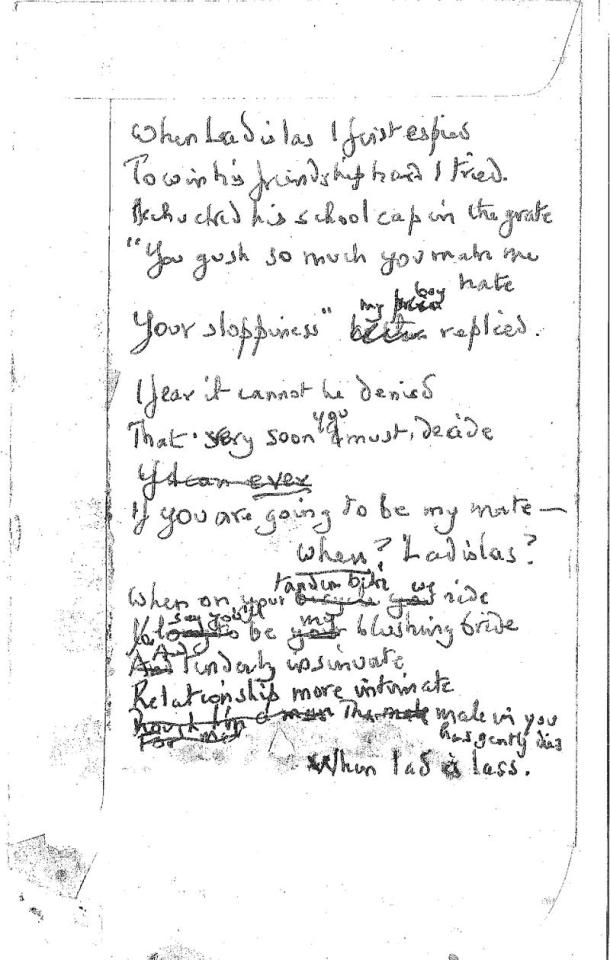 When Ladislas I first espied
To win his friendship hard I tried.
He chucked his school cap in the grate
"You gush so much you make me
hate
my boy
Your sloppiness" replied.
I fear it cannot be denied
you
That very soon must decide
If you are going to be my mate —
When? Ladislas?
tandem bike we
When on your bicycle you ride
say you'll my
to be your blushing bride
And
And tenderly insinuate
Relationship more intimate
The male male in you
For men has gently died
When lad is lass.